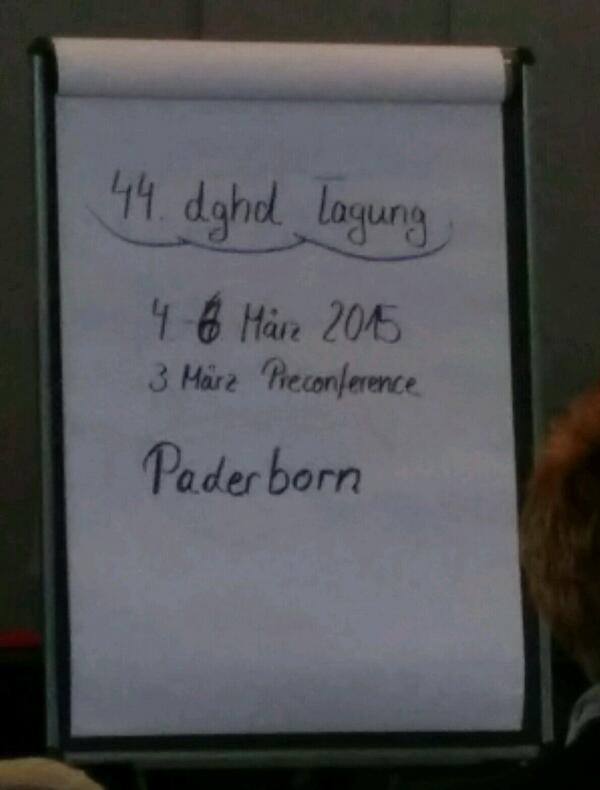 44. dghd Tagung
4-6 März 2015
3 März Preconference
Paderborn